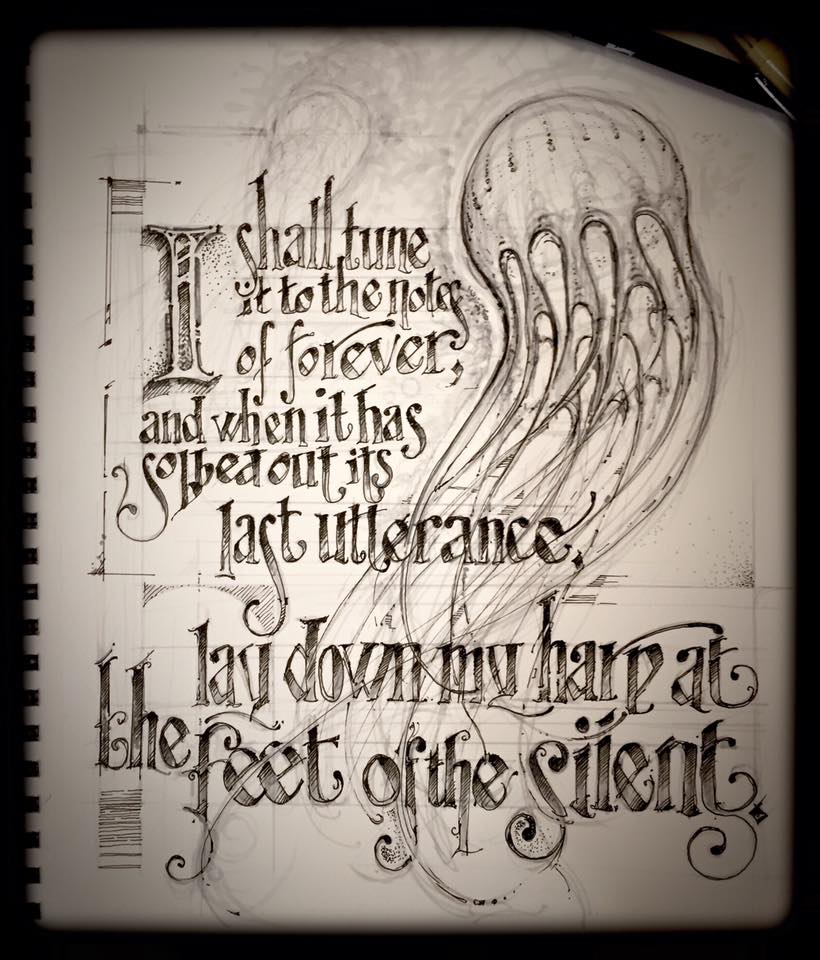 I shall tune
it to the notes
of forever;
and when it has
sobbed out its
last utterance,
lay down my harp at
the feet of the silent.